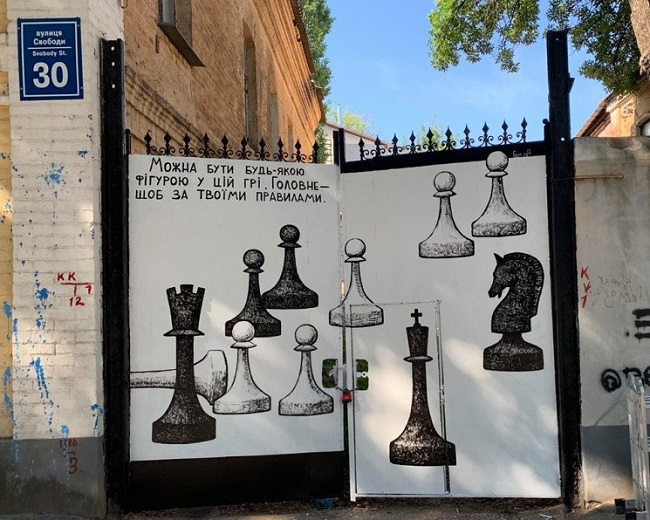 вулиця
Свободи
Svobody St.
30
Можна бути будь-якою
фігурою у цій грі. Головне—
щоб за твоїми правилами.
Гамлет
КК
12
К